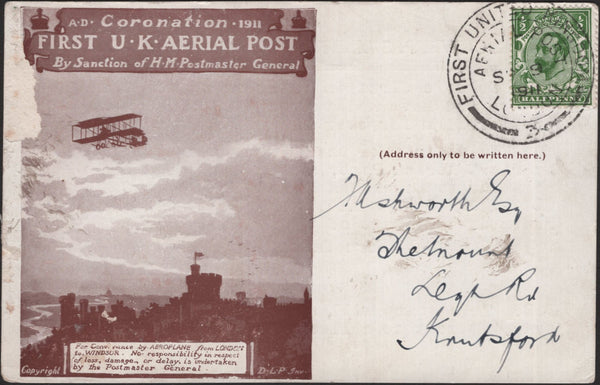 A·D· Coronation · 1911
FIRST U·K·AERIAL POST
By Sanction of H·M·Postmaster General
For Conveyance by AEROPLANE from LONDON
to WINDSOR. No responsibility in respect
of loss, damage, or delay, is undertaken
by the Postmaster General.
Copyright
D·L·P Inv.
FIRST UNITED
AERIAL
LONDON
3
HALFPENNY
(Address only to be written here.)
Ashworth Esq
The Mount
Legh Rd
Knutsford